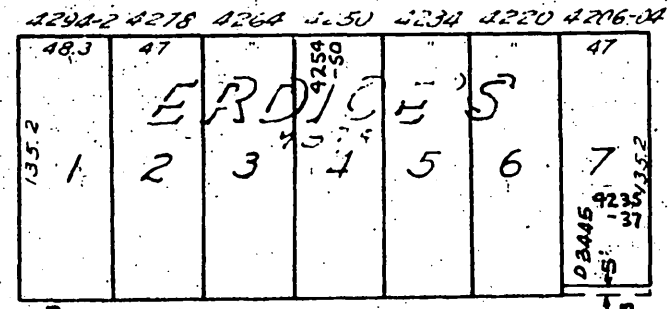 4294-2 4278 4264 4250 4234 4220 4206-04
48.3 47 " " 47
4254
-50
ERDICE'S
135.2 1 2 3 4 5 6 7 135.2
4235
-37
D 3445
5'